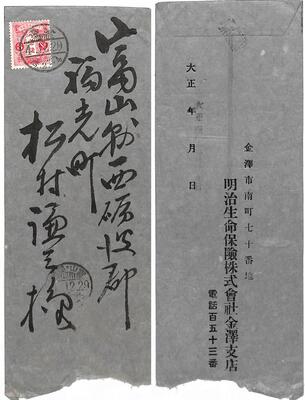 富山縣西礪波郡
福光町
松村謙三様
12.29
大正 年 月 日
金澤市南町七十番地
明治生命保險株式會社金澤支店
電話百五十三番